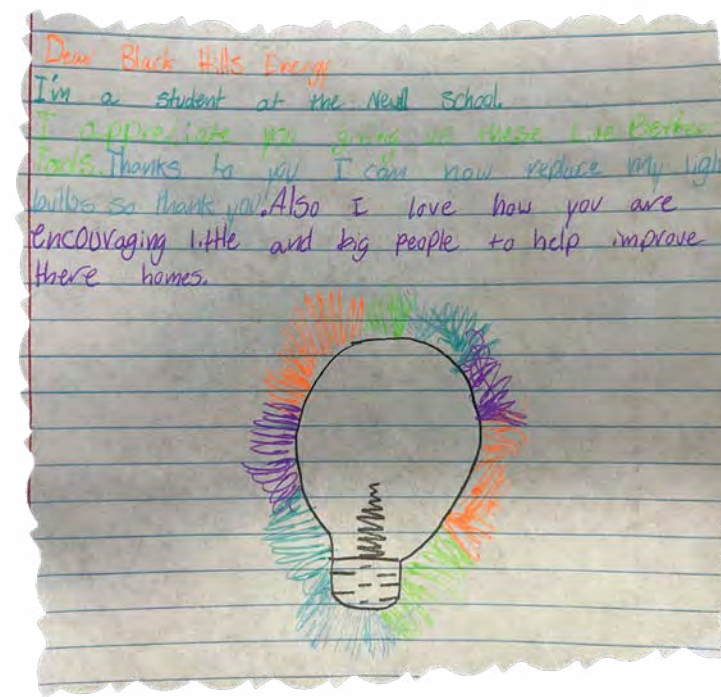 Dear Black Hills Energy
I'm a student at the Newell School.
I appreciate you giving us these Live Better
Tools. Thanks to you I can now replace my light
bulbs so thank you. Also I love how you are
encouraging little and big people to help improve
there homes.